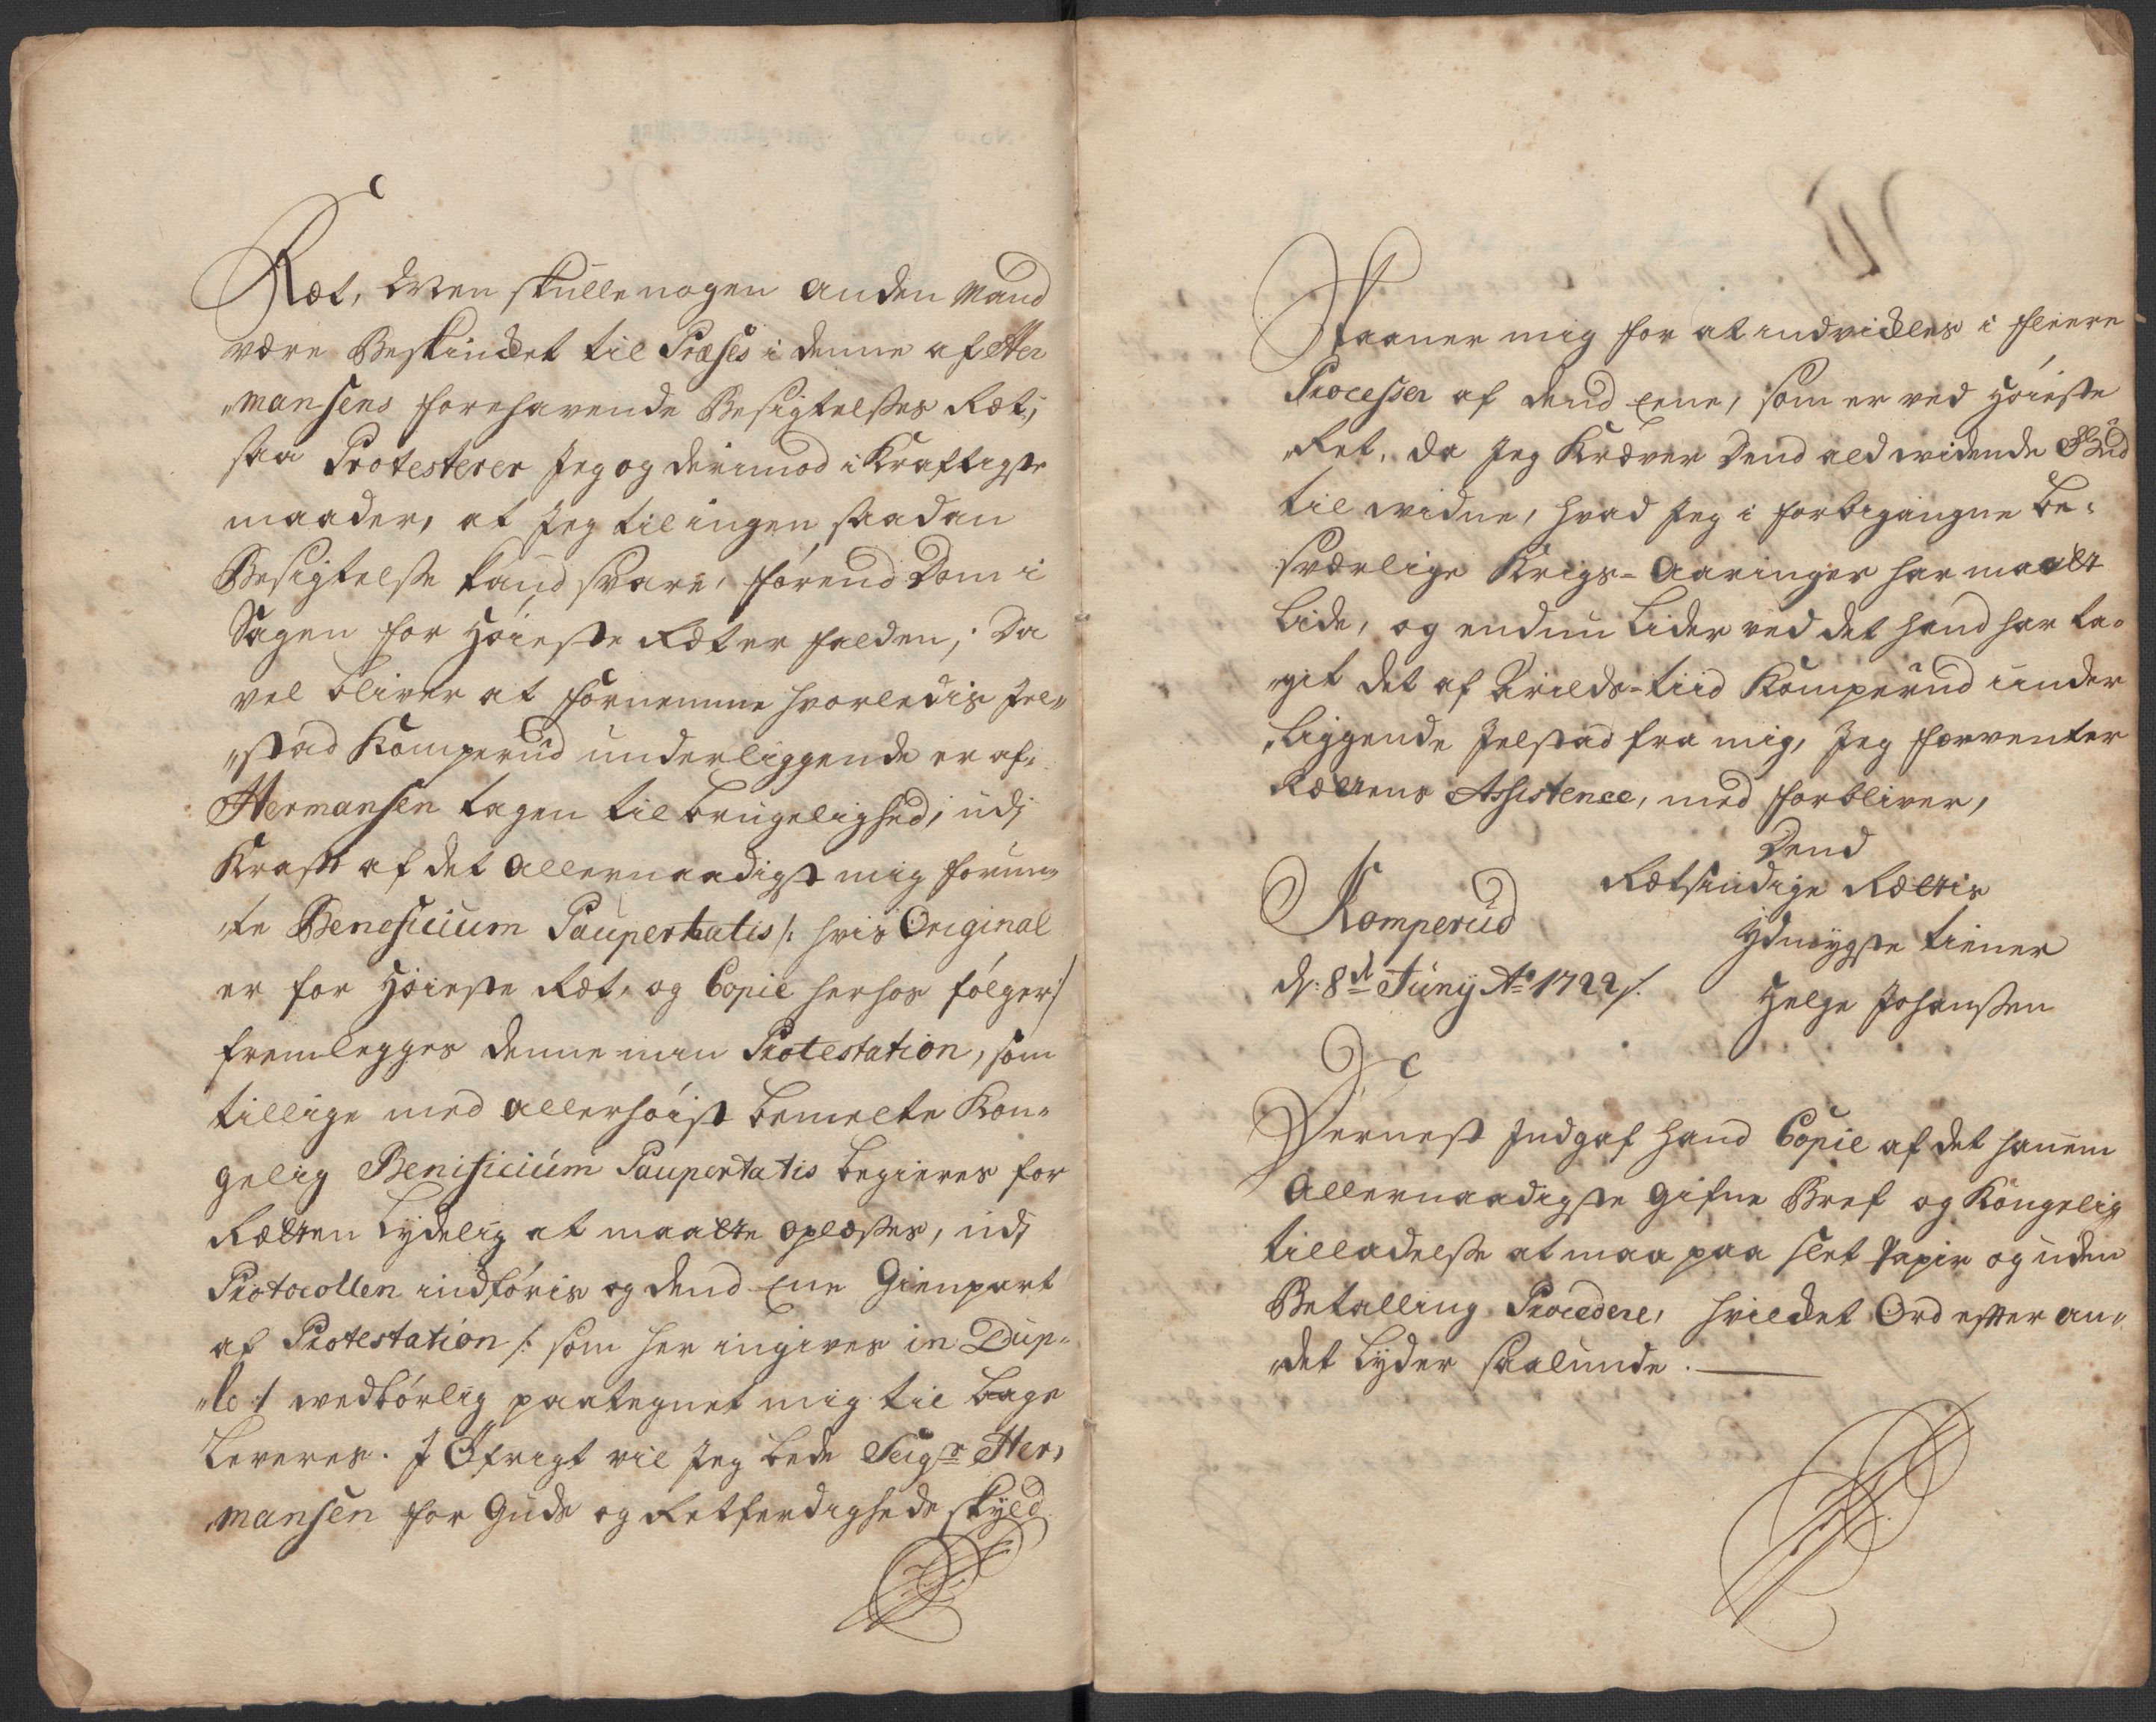 Ræt, Men skulle nogen anden Mand
være Beskindet til Præses i denne af Her
"mansens forehavende Besigtelsses Ræt,
saa Protesterer Jeg og derimod i Kraftigste
maader, at Jeg til ingen saadan
Besigtelsse kand svare, førend Dom i
Sagen for Høieste Ræt er falden; Da
vel bliver at fornemme hvorledis Jel"
"stad Komperud underliggende er af
Hermansen tagen til brugelighed; udj
Kraft af det allernaadigst mig forun"
"te Beneficium Paupertatis /: hvis Original
er for Høieste Ræt, og Copie herhos følger /
fremlegges denne min Protestation, som
tillige med allerhøist bemelte Kon"
gelig Benificium Paupertatis begieres for
Rætten Lydelig at maatte oplæsses, udj
Protocollen indføris og dend Ene Gienpart
af Protestation /: som her ingives in Dup"
"lo :/ wedbørlig paategnet mig til bage
Leveres. J Øfrigt vil Jeg bede Sigr Her,
"mansen for Guds og Retferdigheds skyld
Skaaner mig for at indvikles i fleere
Processer af dend Eene, som er ved Høieste
"Ret, da Jeg Kræver dend ald widende Gud
til widne, hvad Jeg i forbigangne be"
sværlige Krigs-Aaringer har maatt
Lide, og endnu Lider ved det hand har ta"
"git det af Arilds-tiid Komperud under
"Liggende Jelstad fra mig, Jeg forventer
Rættens Assistence, med forbliver,
Dend
Rætsindige Rættis
Komperud
Ydmygste tiener
d: 8de Junij Ao 1722 /.
Helge Johanssen
Dernest Indgaf hand Copie af det hanem
Allernaadigste gifne Bref og Kongelig
tilladelsse at maa paa slet Papir og uden
Betalling Procedere, hvilcket Ord efter an"
"det Lyder saalunde.